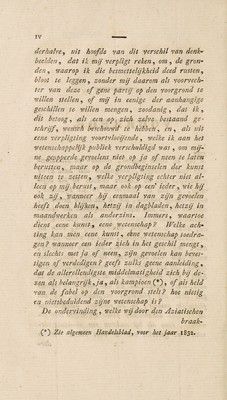 IV
derhalve, uit hoofde van dit verschil van denk-
beelden, dat ik mij verpligt reken, om, de gron-
den, waarop ik die besmettelijkheid deed rusten,
bloot te leggen, zonder mij daarom als voorvech-
ter van deze of gene partij op den voorgrond te
willen stellen, of mij in eenige der aanhangige
geschillen te willen mengen, zoodanig, dat ik
dit betoog, als een op zich zelve bestaand ge-
schrijf, wensch beschouwd te hebben, en, als uit
eene verpligting voortvloeijende, welke ik aan het
wetenschappelijk publiek verschuldigd was, om mij-
ne geopperde gevoelens niet op ja of neen te laten
berusten, maar op de grondbeginselen der kunst
uiteen te zetten, welke verpligting echter niet al-
leen op mij berust, maar ook op een ieder, wie hij
ook zij, wanneer hij eenmaal van zijn gevoelen
heeft doen blijken, hetzij in dagbladen, hetzij in
maandwerken als anderzins. Immers, waartoe
dient eene kunst, eene wetenschap? Welke ach-
ting kan men eene kunst, eene wetenschap toedra-
gen? wanneer een ieder zich in het geschil mengt,
en slechts met ja of neen, zijn gevoelen kan beves-
tigen of verdedigen? geeft zulks geene aanleiding,
dat de allerellendigste middelmatigheid zich bij de-
zen als belangrijk, ja, als kampioen (*), of als held
van de fabel op den voorgrond stelt? hoe nietig
en nietsbeduidend zijne wetenschap is?
De ondervinding, welke wij door den Aziatischen
braak-
(*) Zie algemeen Handelsblad, voor het jaar 1832.